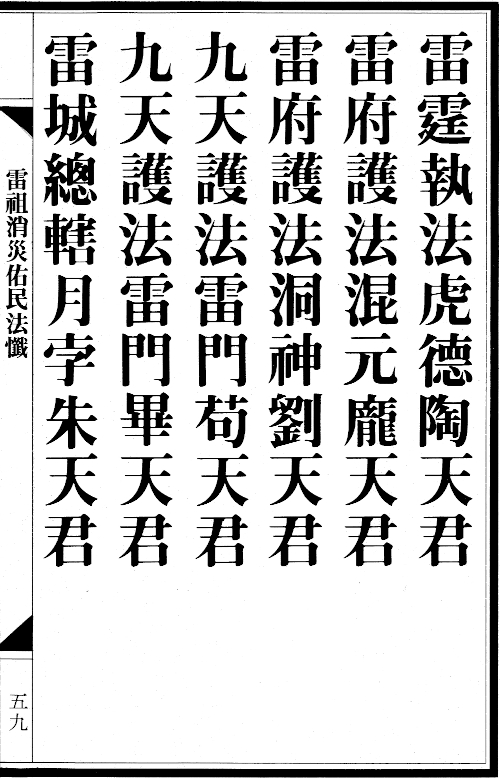 雷霆執法虎德陶天君
雷府護法混元龐天君
雷府護法洞神劉天君
九天護法雷門苟天君
九天護法雷門畢天君
雷城總轄月孛朱天君
雷祖消災佑民法懺
五九